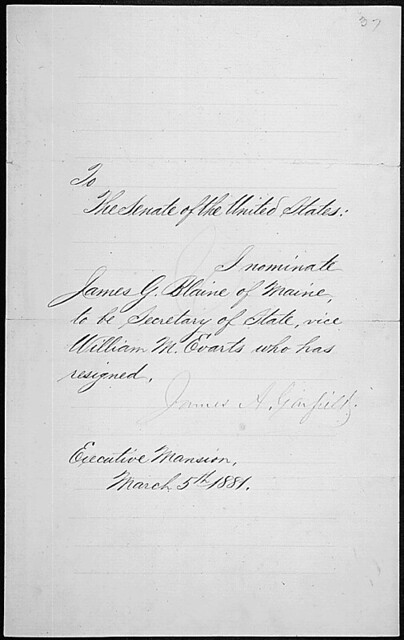 37
To
The Senate of the United States:
I nominate
James G. Blaine of Maine,
to be Secretary of State, vice
William M. Evarts who has
resigned.
James A. Garfield
Executive Mansion,
March 5th 1881.